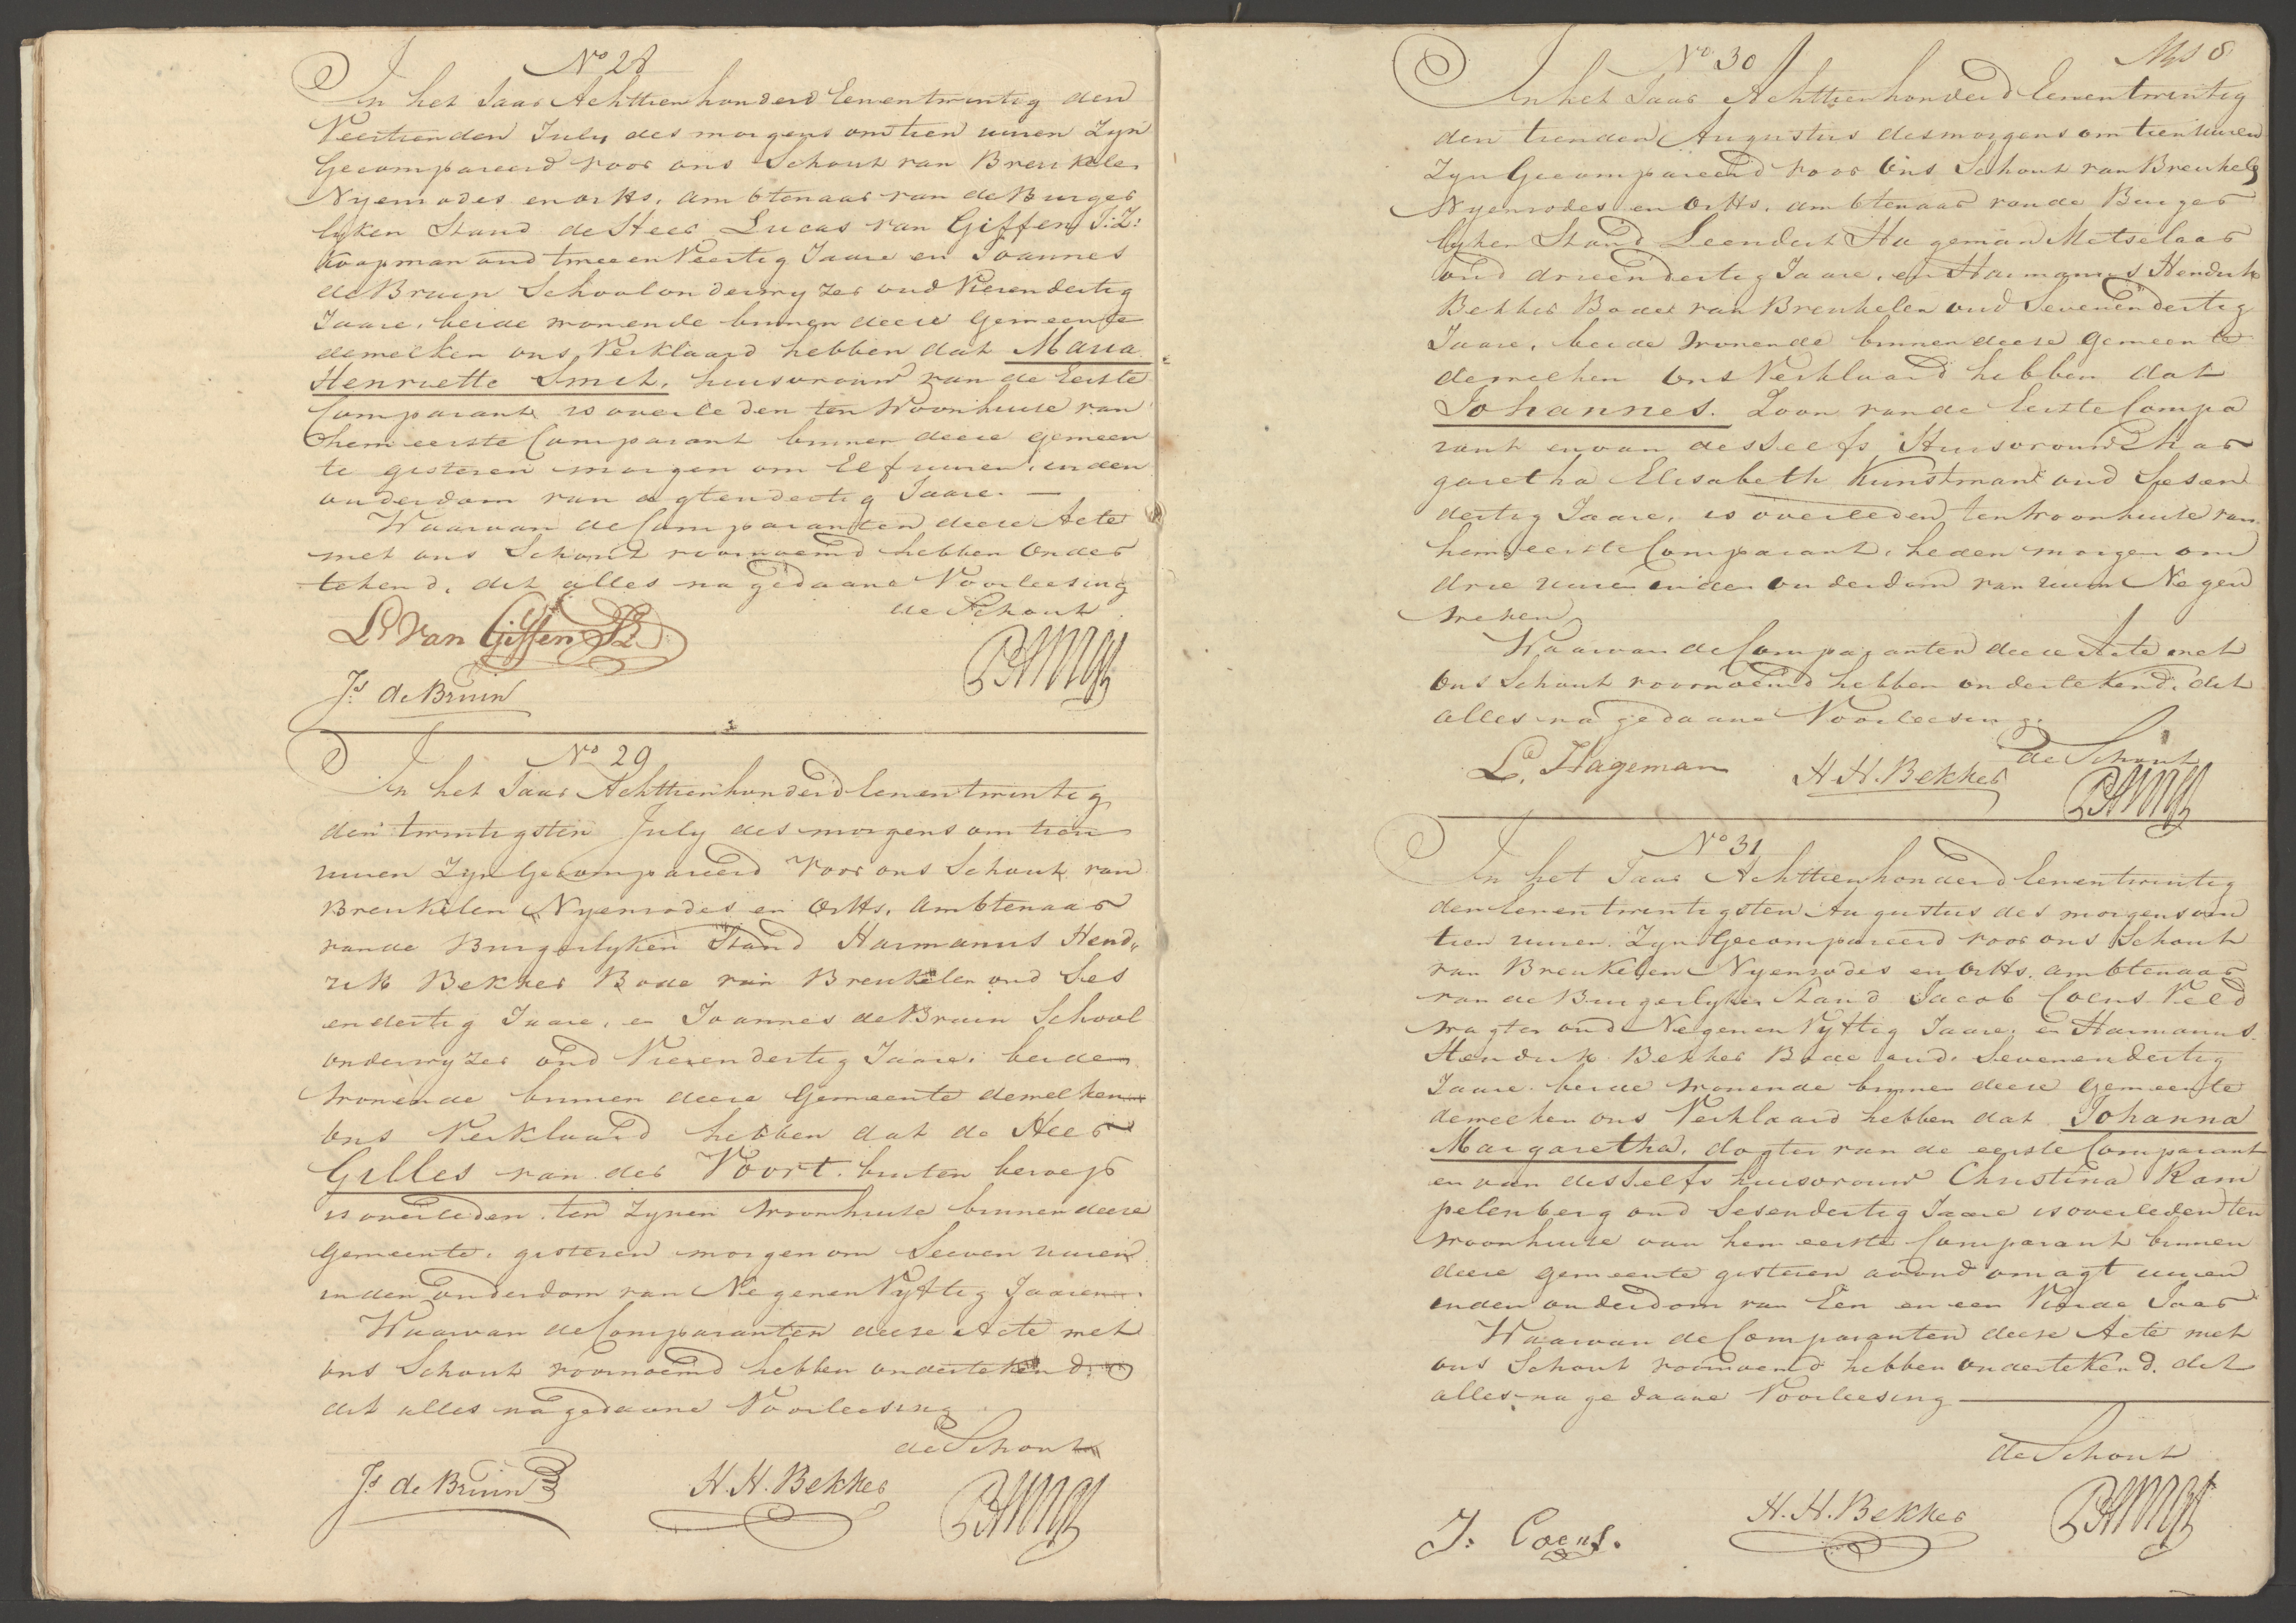 No 28
In het Jaar Achttienhonderd Eenentwintig den
Veertienden July des morgens om tien uuren Zyn
Gecompareerd voor ons Schout van Breukelen
Nyenrodes en orths. ambtenaar van de Burger
lyken Stand de Heer Lucas van Giffen J:Z:
Koopman oud tweeenveertig Jaare en Joannes
de Bruin Schoolonderwyzer oud Vierendertig
Jaare, beide wonende binnen deese Gemeente
dewelken ons Verklaard hebben dat Maria
Henriette Smit, huisvrouw van de Eerste
Comparant is overleden ten Woonhuise van
hem eerste Comparant binnen deese gemeen
te gisteren morgen om Elf uuren, in den
ouderdom van agtendertig Jaare. —
Waarvan de Comparanten deese Acte
met ons Schout voornoemd hebben Onder
tekend, dit alles na gedaane Voorleesing
de Schout
Ls van Giffen JZ.
Js de Bruin
No 29
In het Jaar Achttienhonderd Eenentwintig
den twintigsten July des morgens om tien
uuren Zyn Gecompareerd Voor ons Schout van
Breukelen Nyenrodes en Orths. Ambtenaar
van de Burgerlyken Stand Harmanus Hend„
rik Bekker Bode van Breukelen oud Ses
en dertig Jaare, en Joannes de Bruin School
onderwyzer oud Vierendertig Jaare, beide
wonende binnen deese Gemeente dewelken
ons Verklaard hebben dat de Heer
Gilles van der Voort. buiten beroep
is overleden ten Zynen Woonhuise binnen deese
Gemeente, gisteren morgen om Seeven uuren
in den ouderdom van Negenenvyftig Jaaren
Waarvan de Comparanten deese Acte met
ons Schout voornoemd hebben ondertekend.
dit alles na gedaane Voorleesing
de Schout
Js de Bruin
H. H. Bekker
8
No 30
In het Jaar Achttienhonderd Eenentwintig
den tienden Augustus des morgens om tien uuren
Zyn Gecompareerd voor Ons Schout van Breukele
Nyenrodes en Orths. ambtenaar van de Burger
lyken Stand Leendert Hageman Metselaar
oud drieendertig Jaare, en Harmanus Hendrik
Bekker Bode van Breukelen oud Sevenendertig
Jaare, beide Wonende binnen deese Gemeente
dewelken Ons Verklaard hebben dat
Johannes. Zoon van de Eerste Compa
rant en van desselfs Huisvrouw Mar
garetha Elisabeth Kunstman oud Sesen
dertig Jaare, is overleden ten Woonhuise van
hem eerste Comparant, heden morgen om
drie uuren in den ouderdom van ruim Negen
weken
Waarvan de Comparanten deese Acte met
Ons Schout voornoemd hebben ondertekend. dit
alles na gedaane Voorleesing.
de Schout
Ld. Hageman
H. H. Bekker
No 31
In het Jaar Achttienhonderd Eenentwintig
den Eenentwintigsten Augustus des morgens om
tien uuren. Zyn Gecompareerd voor ons Schout
van Breukelen Nyenrodes en Orths. ambtenaar
van de Burgerlyken Stand Jacob Coens Veld
wagter oud Negenenvyftig Jaare, en Harmanus
Hendrik Bekker Bode oud Sevenendertig
Jaare. beide Wonende binnen deese Gemeente
dewelken ons Verklaard hebben dat Johanna
Margaretha, dogter van de eerste Comparant
en van desselfs huisvrouw Christina Ram
pelenberg oud Sesendertig Jaare is overleden ten
woonhuise van hem eerste Comparant binnen
deese gemeente gisteren avond om agt uuren
in den ouderdom van Een en een Vierde Jaar
Waarvan de Comparanten deese Acte met
ons Schout voornoemd hebben ondertekend. dit
alles na gedaane Voorleesing
de Schout
J. Coens.
H. H. Bekker